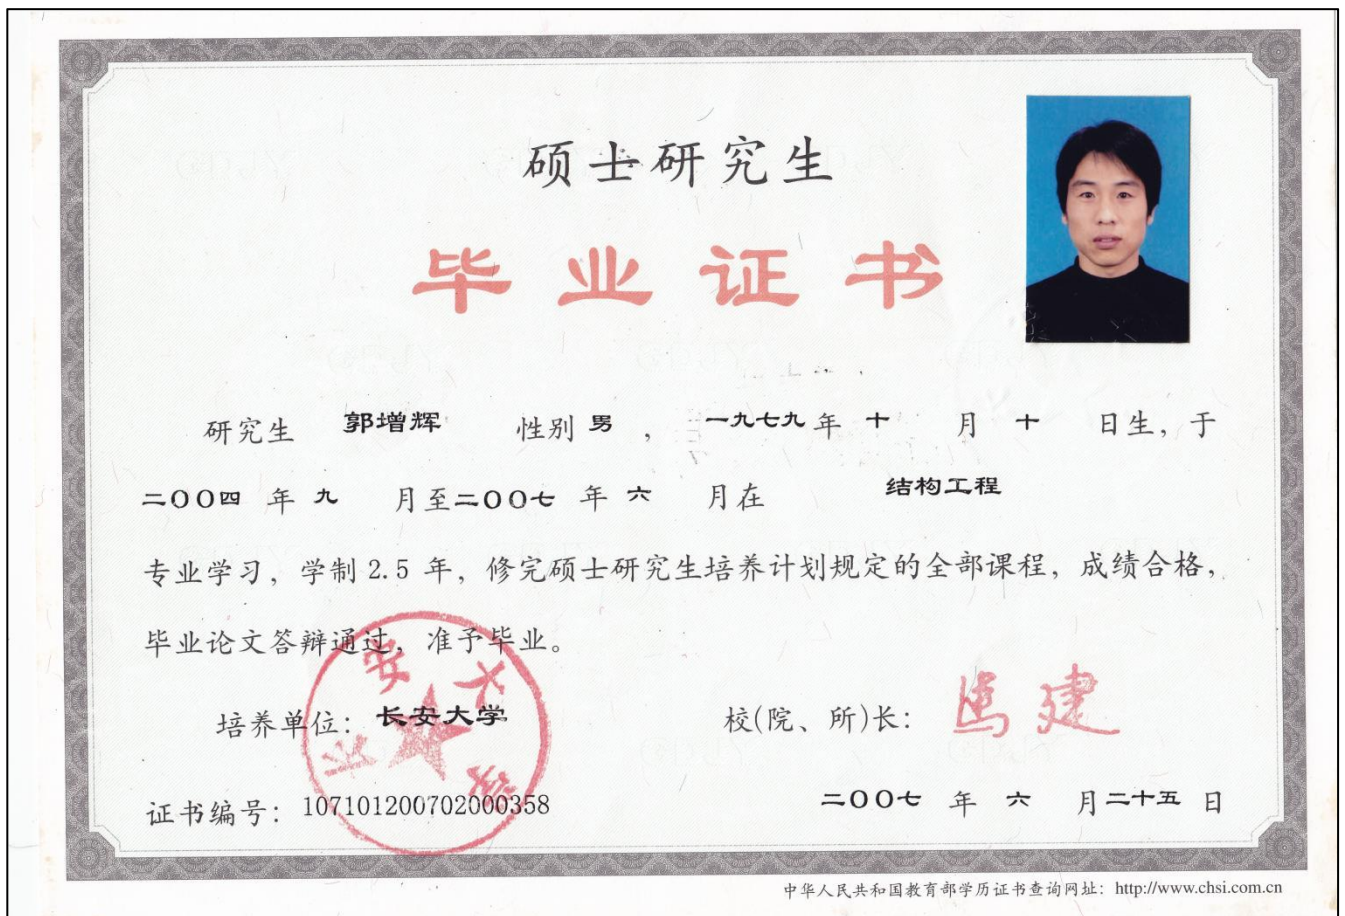 硕士研究生
毕业证书
研究生 郭增辉 性别 男 ， 一九七九 年 十 月 十 日生，于
二〇〇四 年 九 月至 二〇〇七 年 六 月在 结构工程
专业学习，学制 2.5 年，修完硕士研究生培养计划规定的全部课程，成绩合格，
毕业论文答辩通过，准予毕业。
培养单位： 长安大学
校(院、所)长：
证书编号：107101200702000358
二〇〇七 年 六 月 二十五 日
中华人民共和国教育部学历证书查询网址：http://www.chsi.com.cn